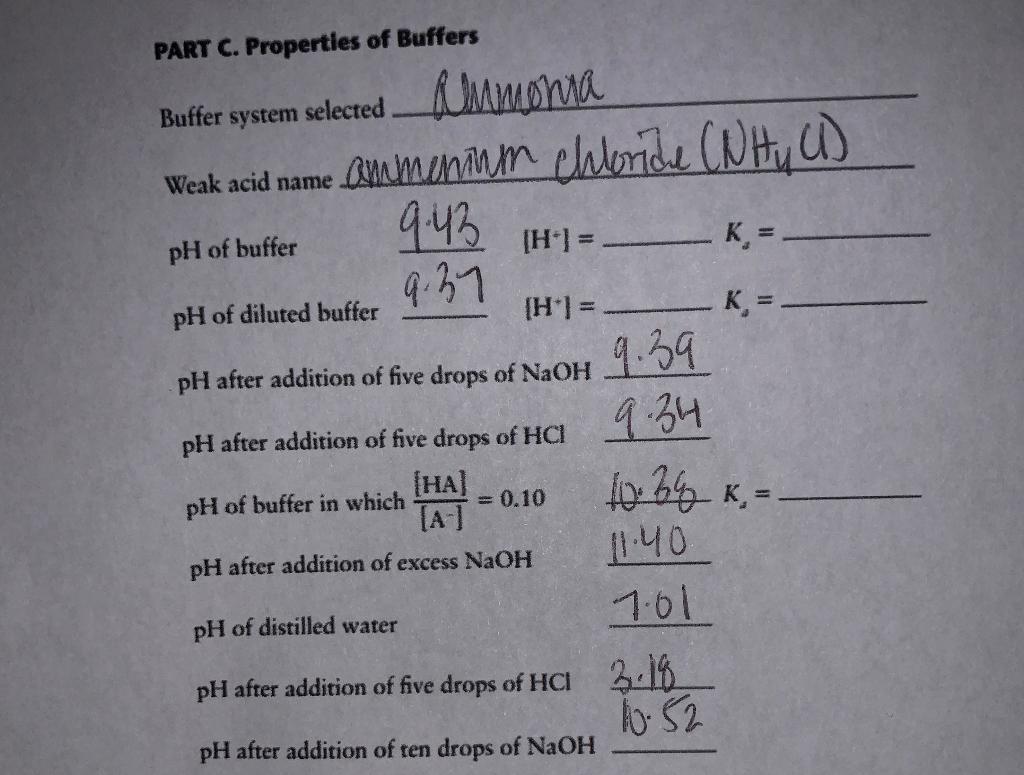 PART C. Properties of Buffers
Buffer system selected Ammonia
Weak acid name ammenium chloride (NH4Cl)
pH of buffer 9.43 [H+] = ____ Ka = ____
pH of diluted buffer 9.37 [H+] = ____ Ka = ____
pH after addition of five drops of NaOH 9.39
pH after addition of five drops of HCl 9.34
pH of buffer in which [HA]/[A-] = 0.10 10.38 Ka = ____
pH after addition of excess NaOH 11.40
pH of distilled water 7.01
pH after addition of five drops of HCl 3.18
pH after addition of ten drops of NaOH 10.52